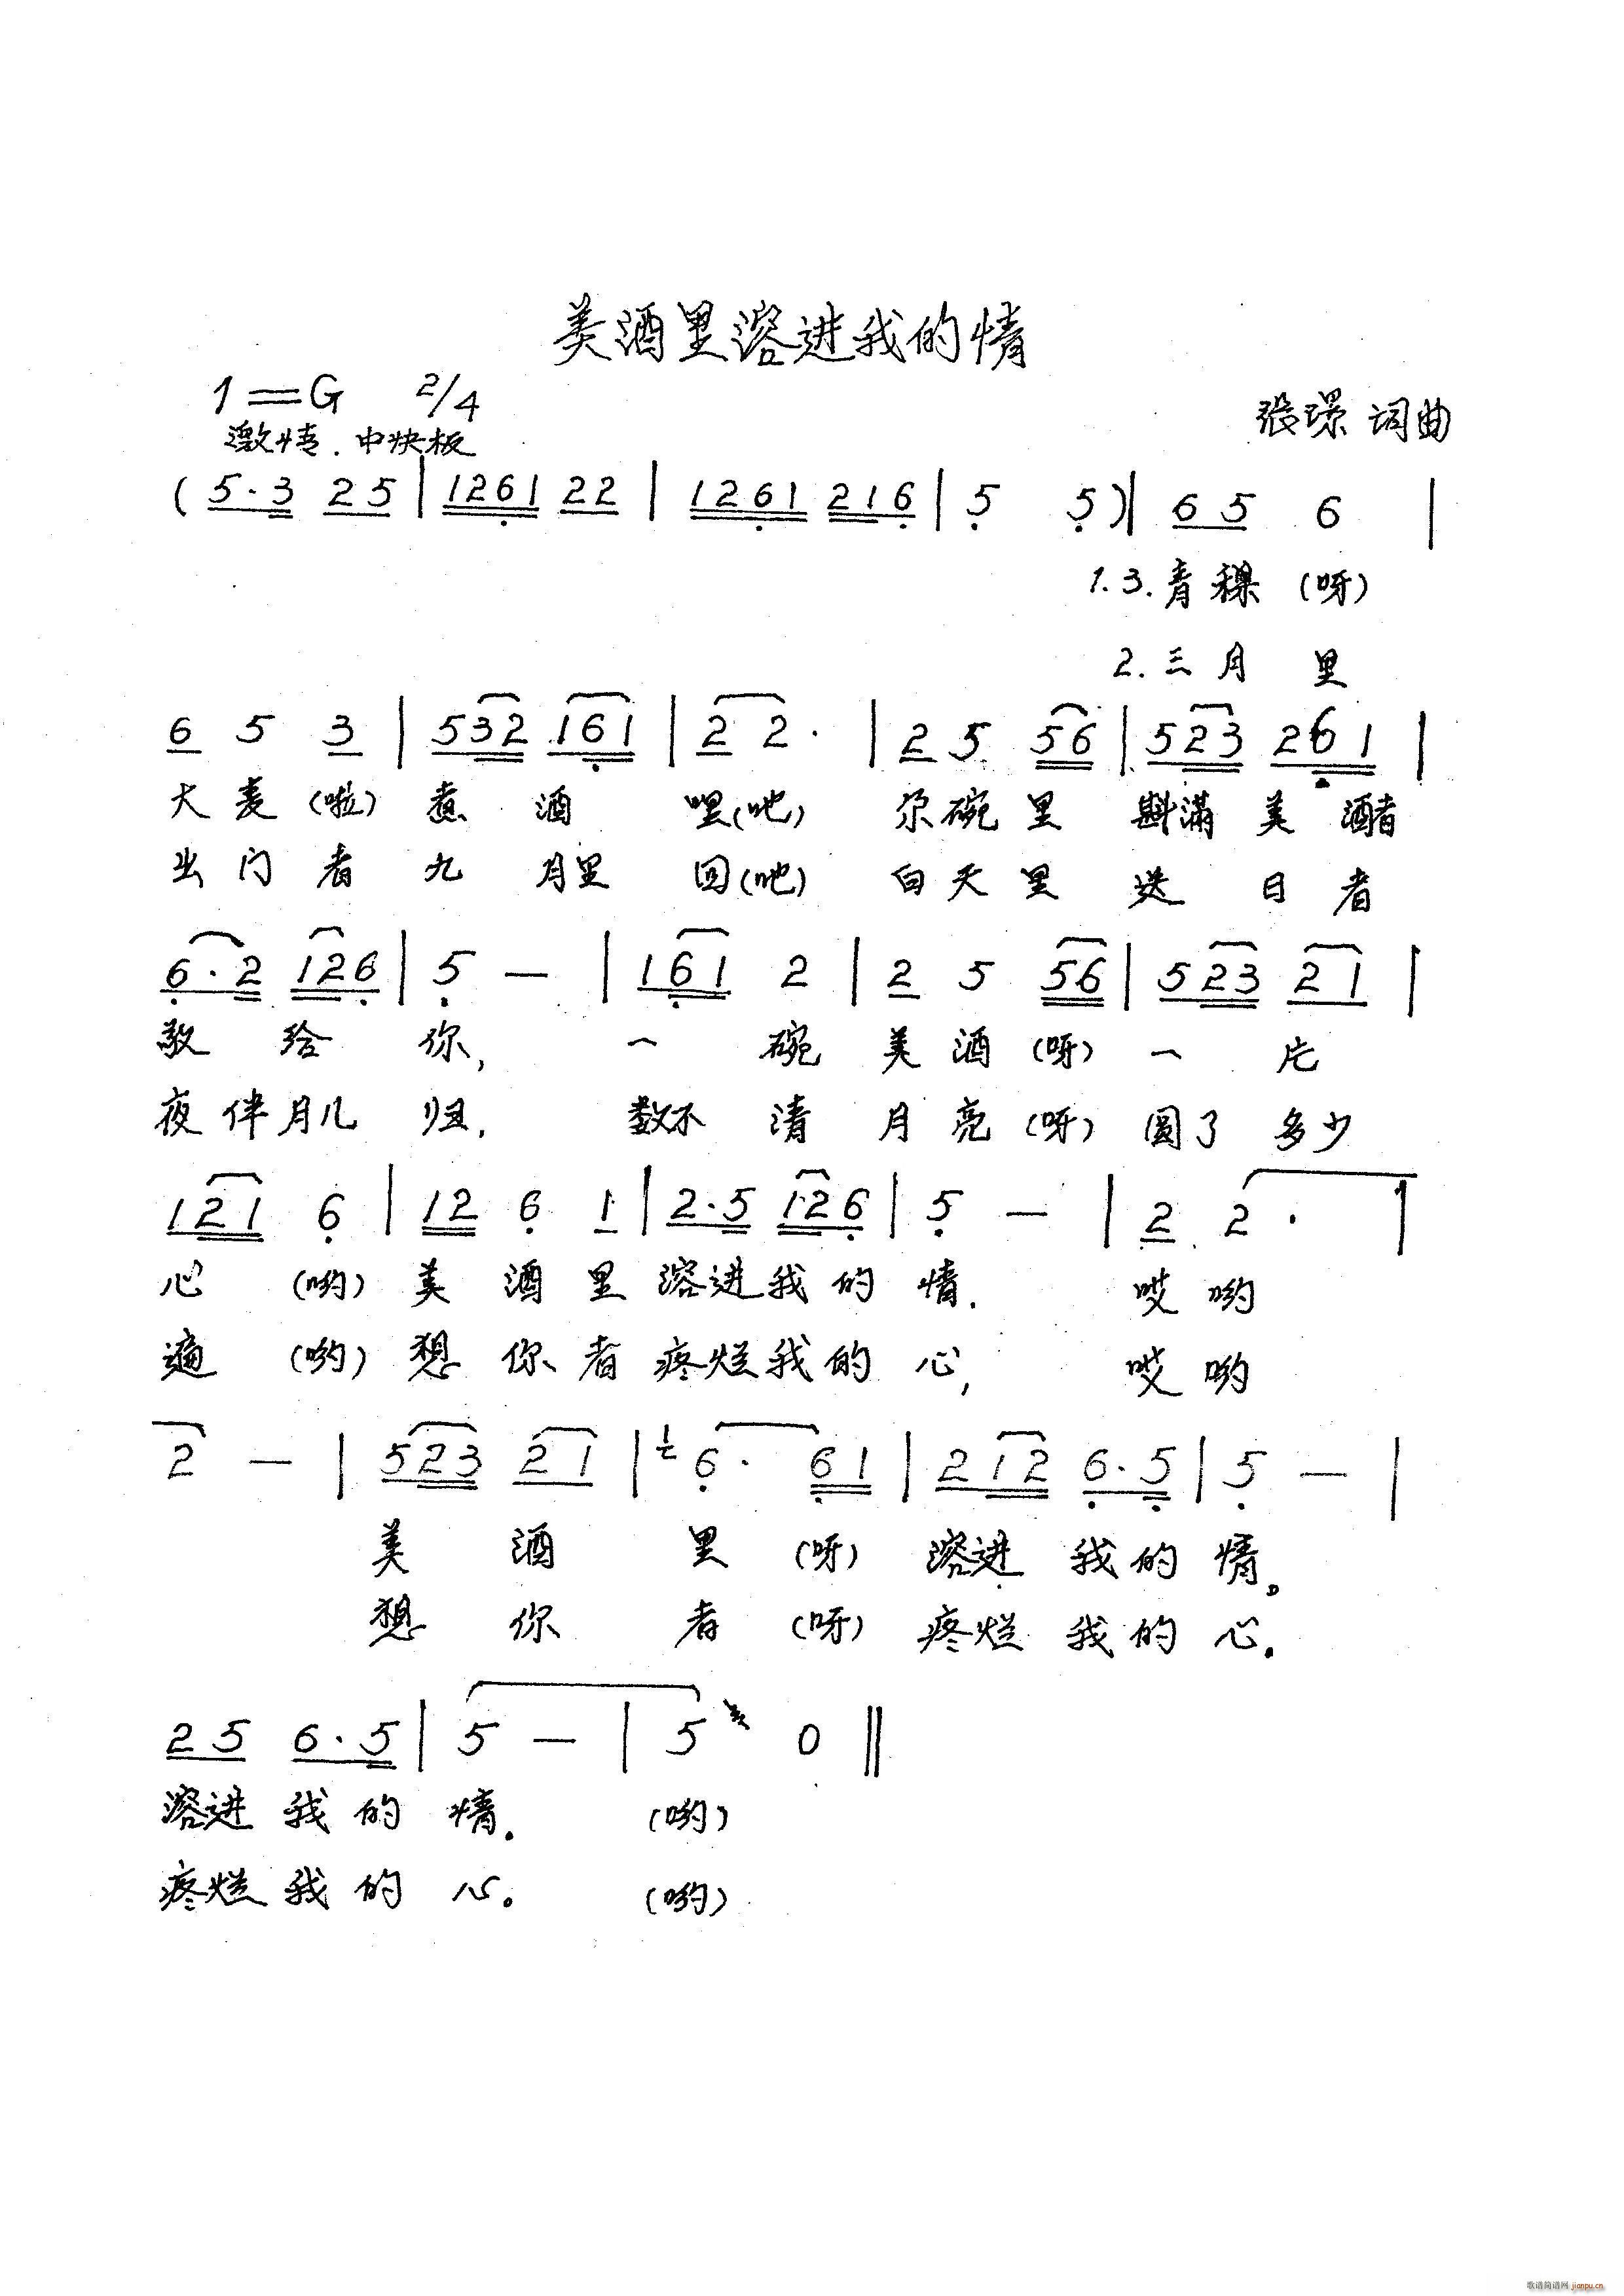 美酒里溶进我的情
1=G 2/4
张璟 词曲
激情.中快板
(5·3 25|1261 22|1261 216|5 5)|65 6|
1.3.青稞(呀)
2.三月里
6 5 3|532 161|2 2·|2 5 56|523 261|
大麦(啦)煮酒 嘿(吔) 尕碗里斟满美酒者
出门者九月里 回(吔) 白天里送日者
6·2 126|5 —|161 2|2 5 56|523 21|
敬给你, 一碗美酒(呀)一片
夜伴月儿归, 数不清月亮(呀)圆了多少
121 6|12 6 1|2·5 126|5 —|2 2·|
心(哟)美酒里溶进我的情. 哎哟
遍(哟)想你者疼烂我的心, 哎哟
2 —|523 21|6· 61|212 6·5|5 —|
美酒里(呀)溶进我的情。
想你者(呀)疼烂我的心.
25 6·5|5 —|5 0‖
溶进我的情. (哟)
疼烂我的心。 (哟)
歌谱简谱网
jianpu.cn